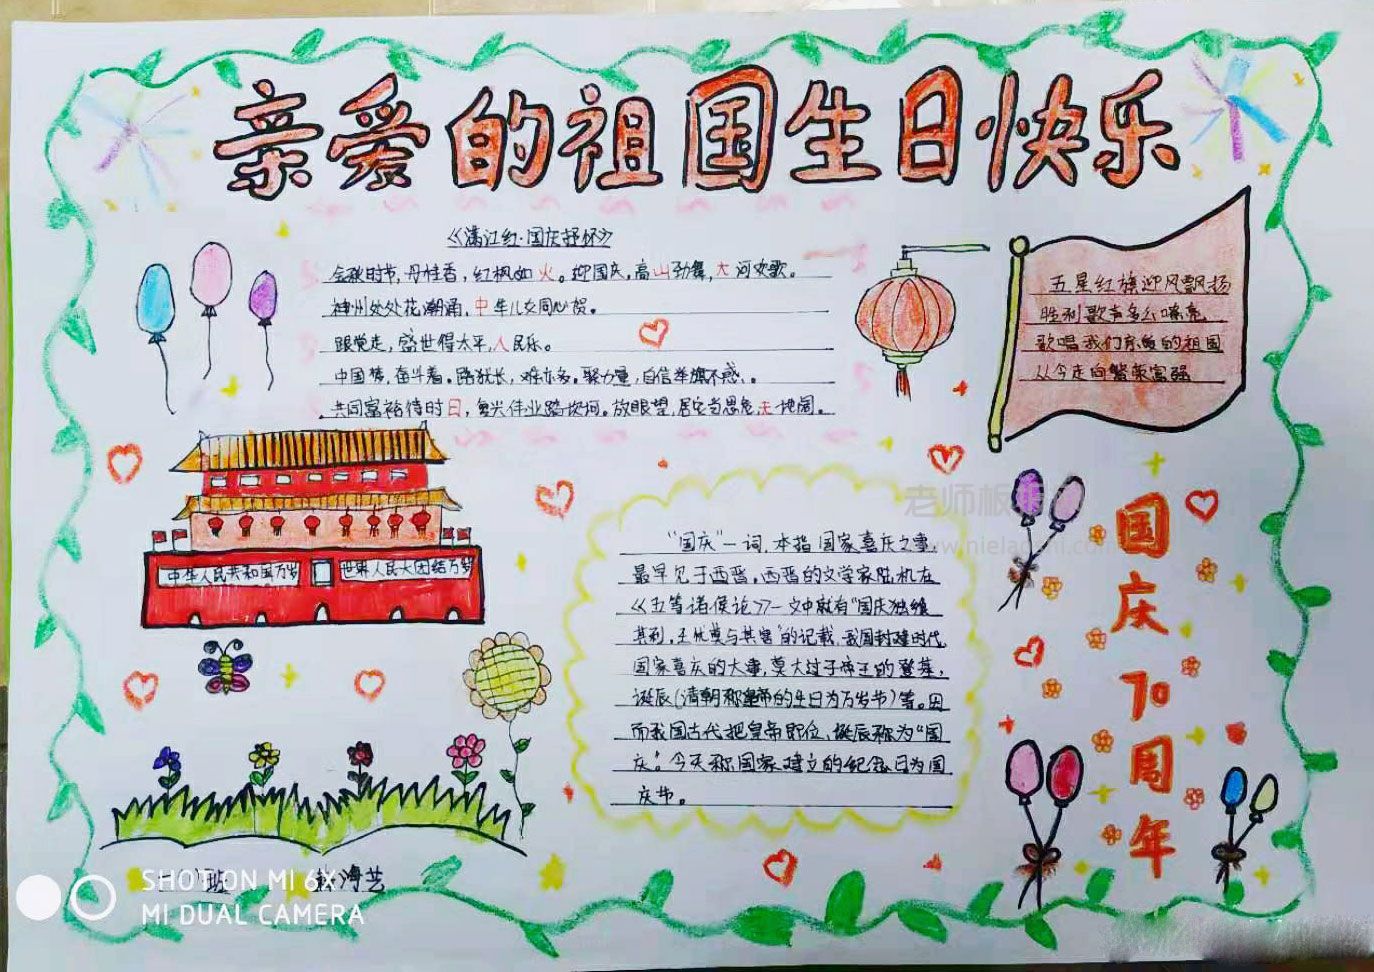 亲爱的祖国生日快乐
《满江红·国庆抒怀》
金秋时节,丹桂香,红枫如火。迎国庆,高山劲舞,大河欢歌。
神州处处花潮涌,中华儿女同心贺。
跟党走,盛世得太平,人民乐。
中国梦,奋斗着。路犹长,难亦多。聚力量,自信举旗不惑。
共同富裕待时日,复兴伟业踏坎坷。放眼望,居安当思危,天地阔。
五星红旗迎风飘扬
胜利歌声多么嘹亮
歌唱我们亲爱的祖国
从今走向繁荣富强
中华人民共和国万岁 世界人民大团结万岁
老师板
www.nielaoshi.com
国庆70周年
"国庆"一词,本指国家喜庆之事,
最早见于西晋。西晋的文学家陆机在
《五等诸侯论》一文中就有"国庆独飨
其利,主忧莫与其害"的记载,我国封建时代
国家喜庆的大事,莫大过于帝王的登基,
诞辰(清朝称皇帝的生日为万岁节)等。因
而我国古代把皇帝即位、诞辰称为"国
庆"。今天称国家建立的纪念日为国
庆节。
班 海艺
SHOT ON MI 6X
MI DUAL CAMERA